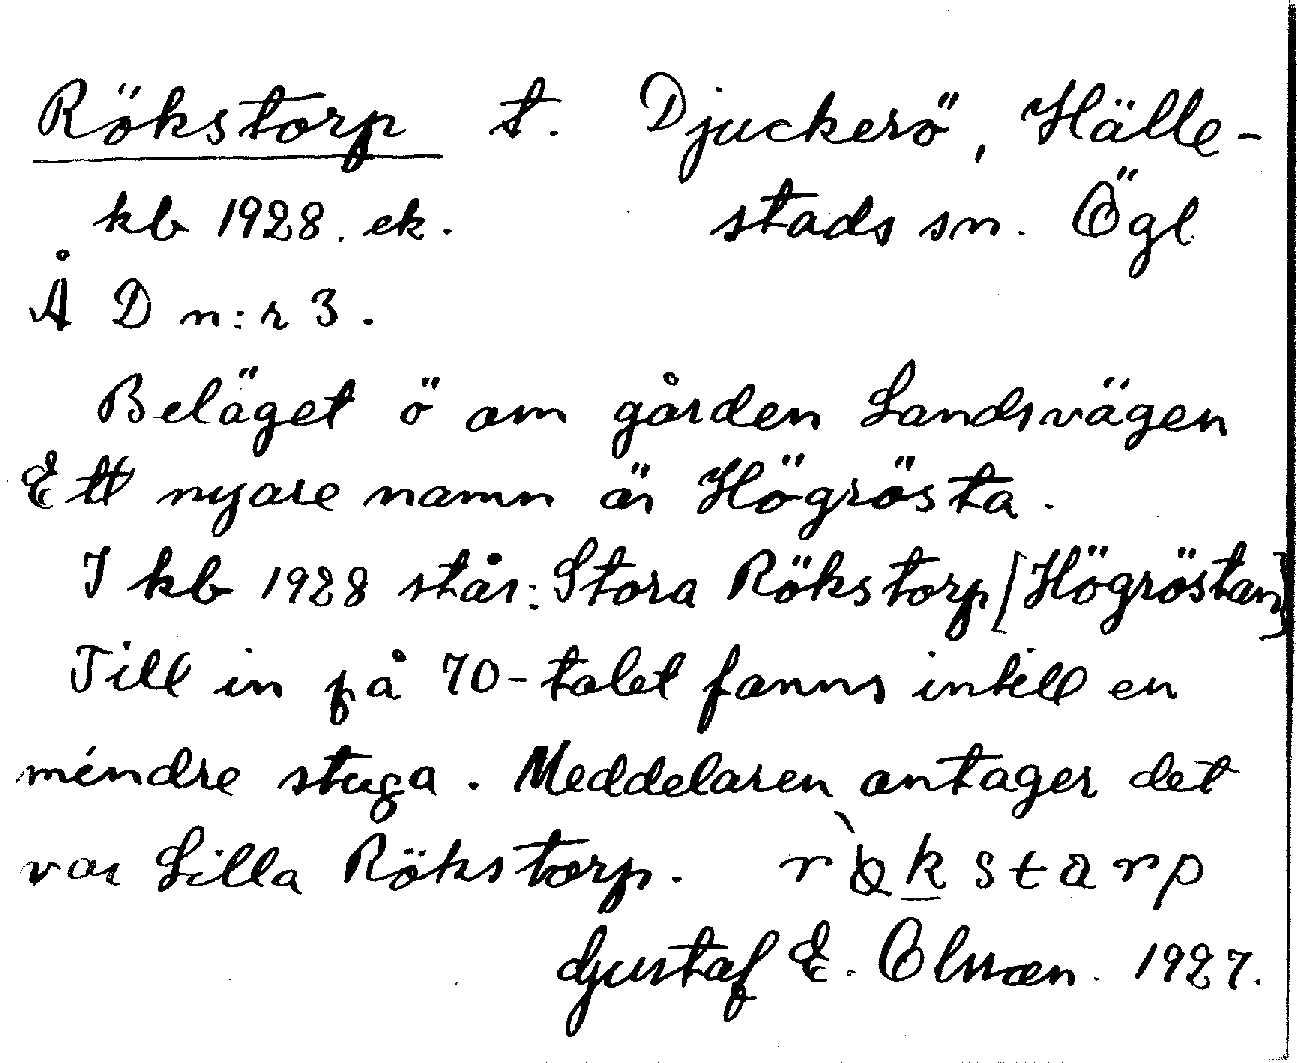 Rökstorp t. Djuckerö, Hälle-
kb 1928. ek. stads sn. Ögl
Å D n:r 3.
Beläget ö om gården Landsvägen
Ett nyare namn är Högrösta.
I kb 1928 står: Stora Rökstorp [Högröstan]
Till in på 70-talet fanns intill en
mindre stuga. Meddelaren antager det
var Lilla Rökstorp.
Gustaf E. Olsson. 1927.